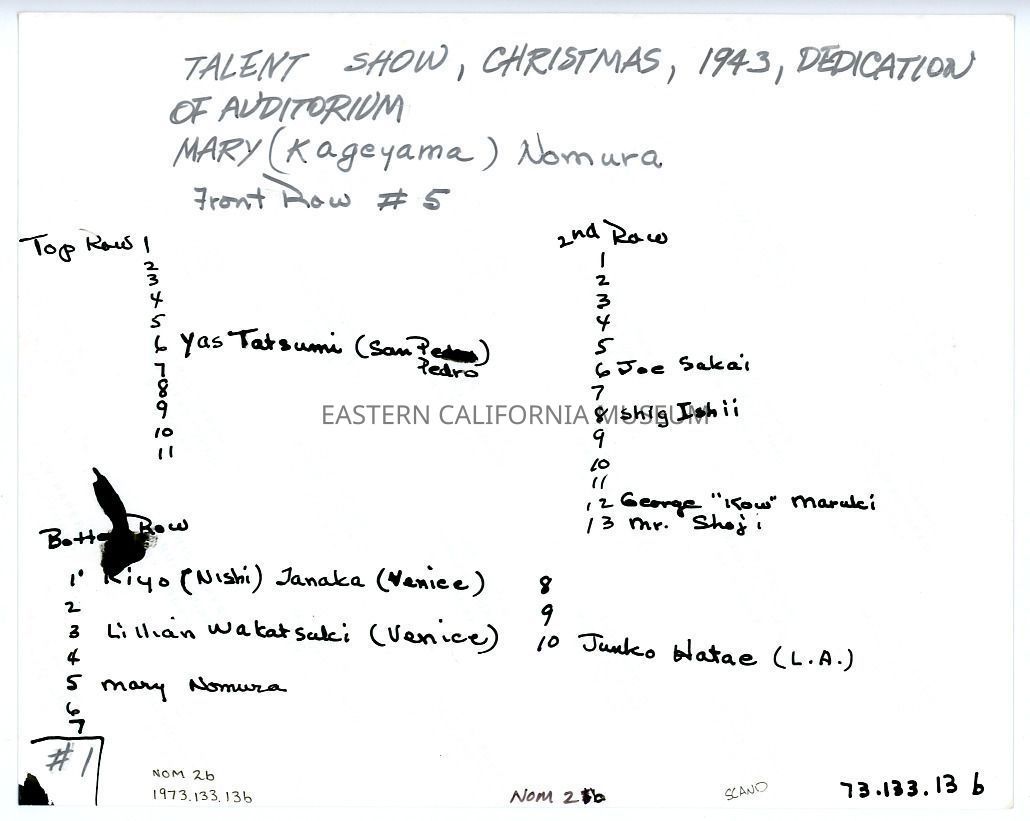 TALENT SHOW, CHRISTMAS, 1943, DEDICATION
OF AUDITORIUM
MARY (Kageyama) Nomura
Front Row # 5
Top Row 1
2
3
4
5
6 Yas Tatsumi (San Pedro)
Pedro
7
8
9
10
11
2nd Row
1
2
3
4
5
6 Joe Sakai
7
8 Shig Ishii
9
10
11
12 George "Kow" Maruki
13 Mr. Shoji
EASTERN CALIFORNIA MUSEUM
Bottom Row
1 Kiyo (Nishi) Tanaka (Venice)
2
3 Lillian Wakatsuki (Venice)
4
5 Mary Nomura
6
7
8
9
10 Junko Hatae (L.A.)
#1
NOM 2b
1973.133.13b
NOM 2b
SCAND
73.133.13 b